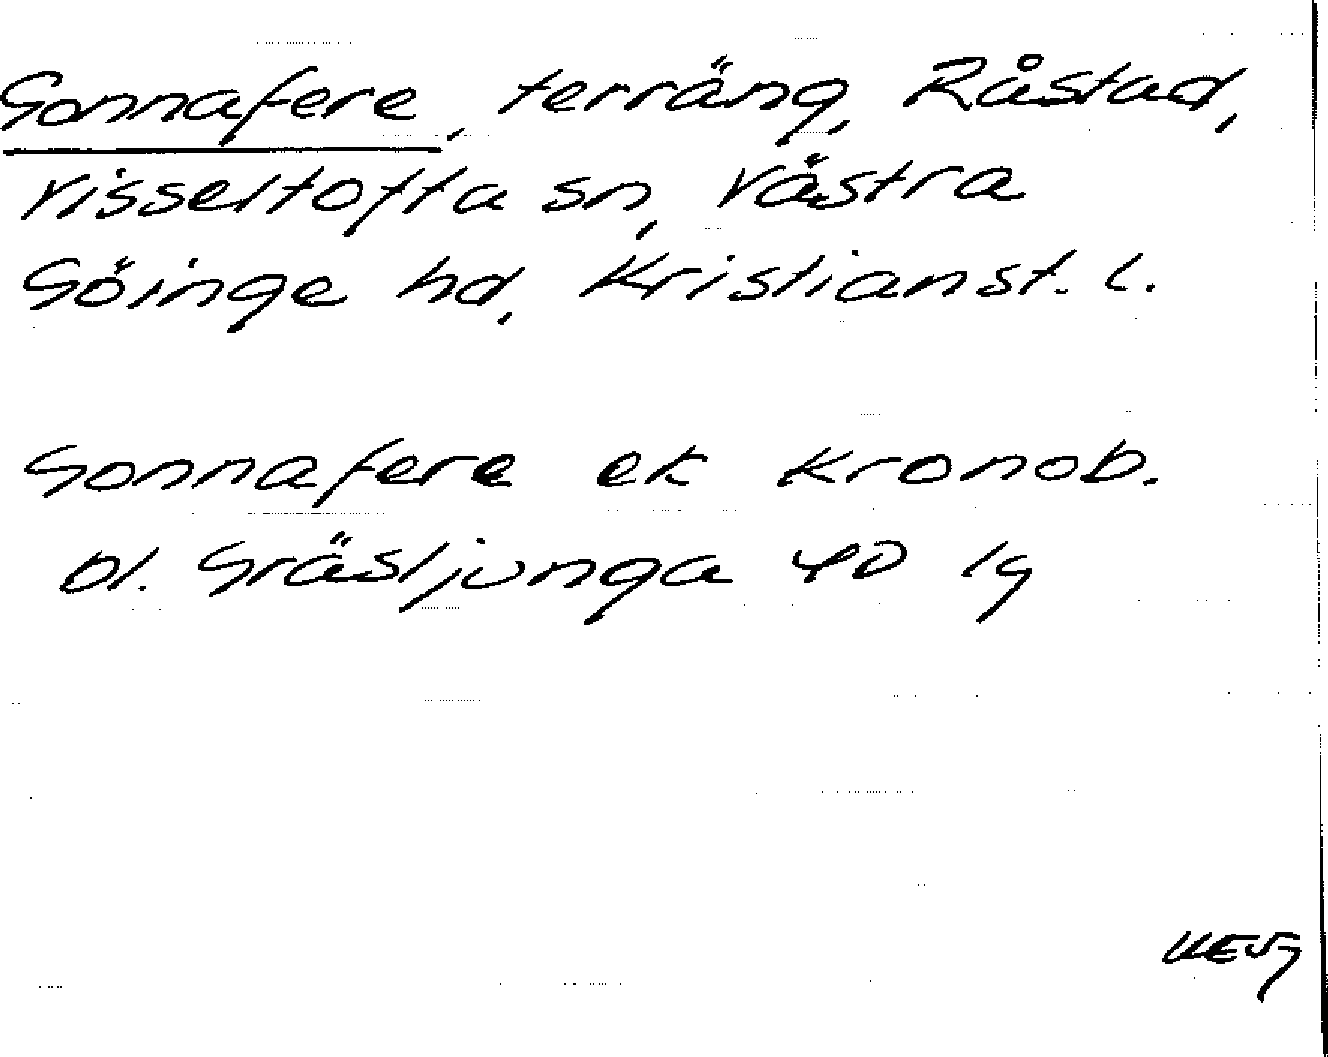 Gonnafere, terräng, Råstad,
Visseltofta sn, Västra
Göinge hd, Kristianst. l.
Gonnafere ek Kronob.
bl. Gräsljunga 4D 1g